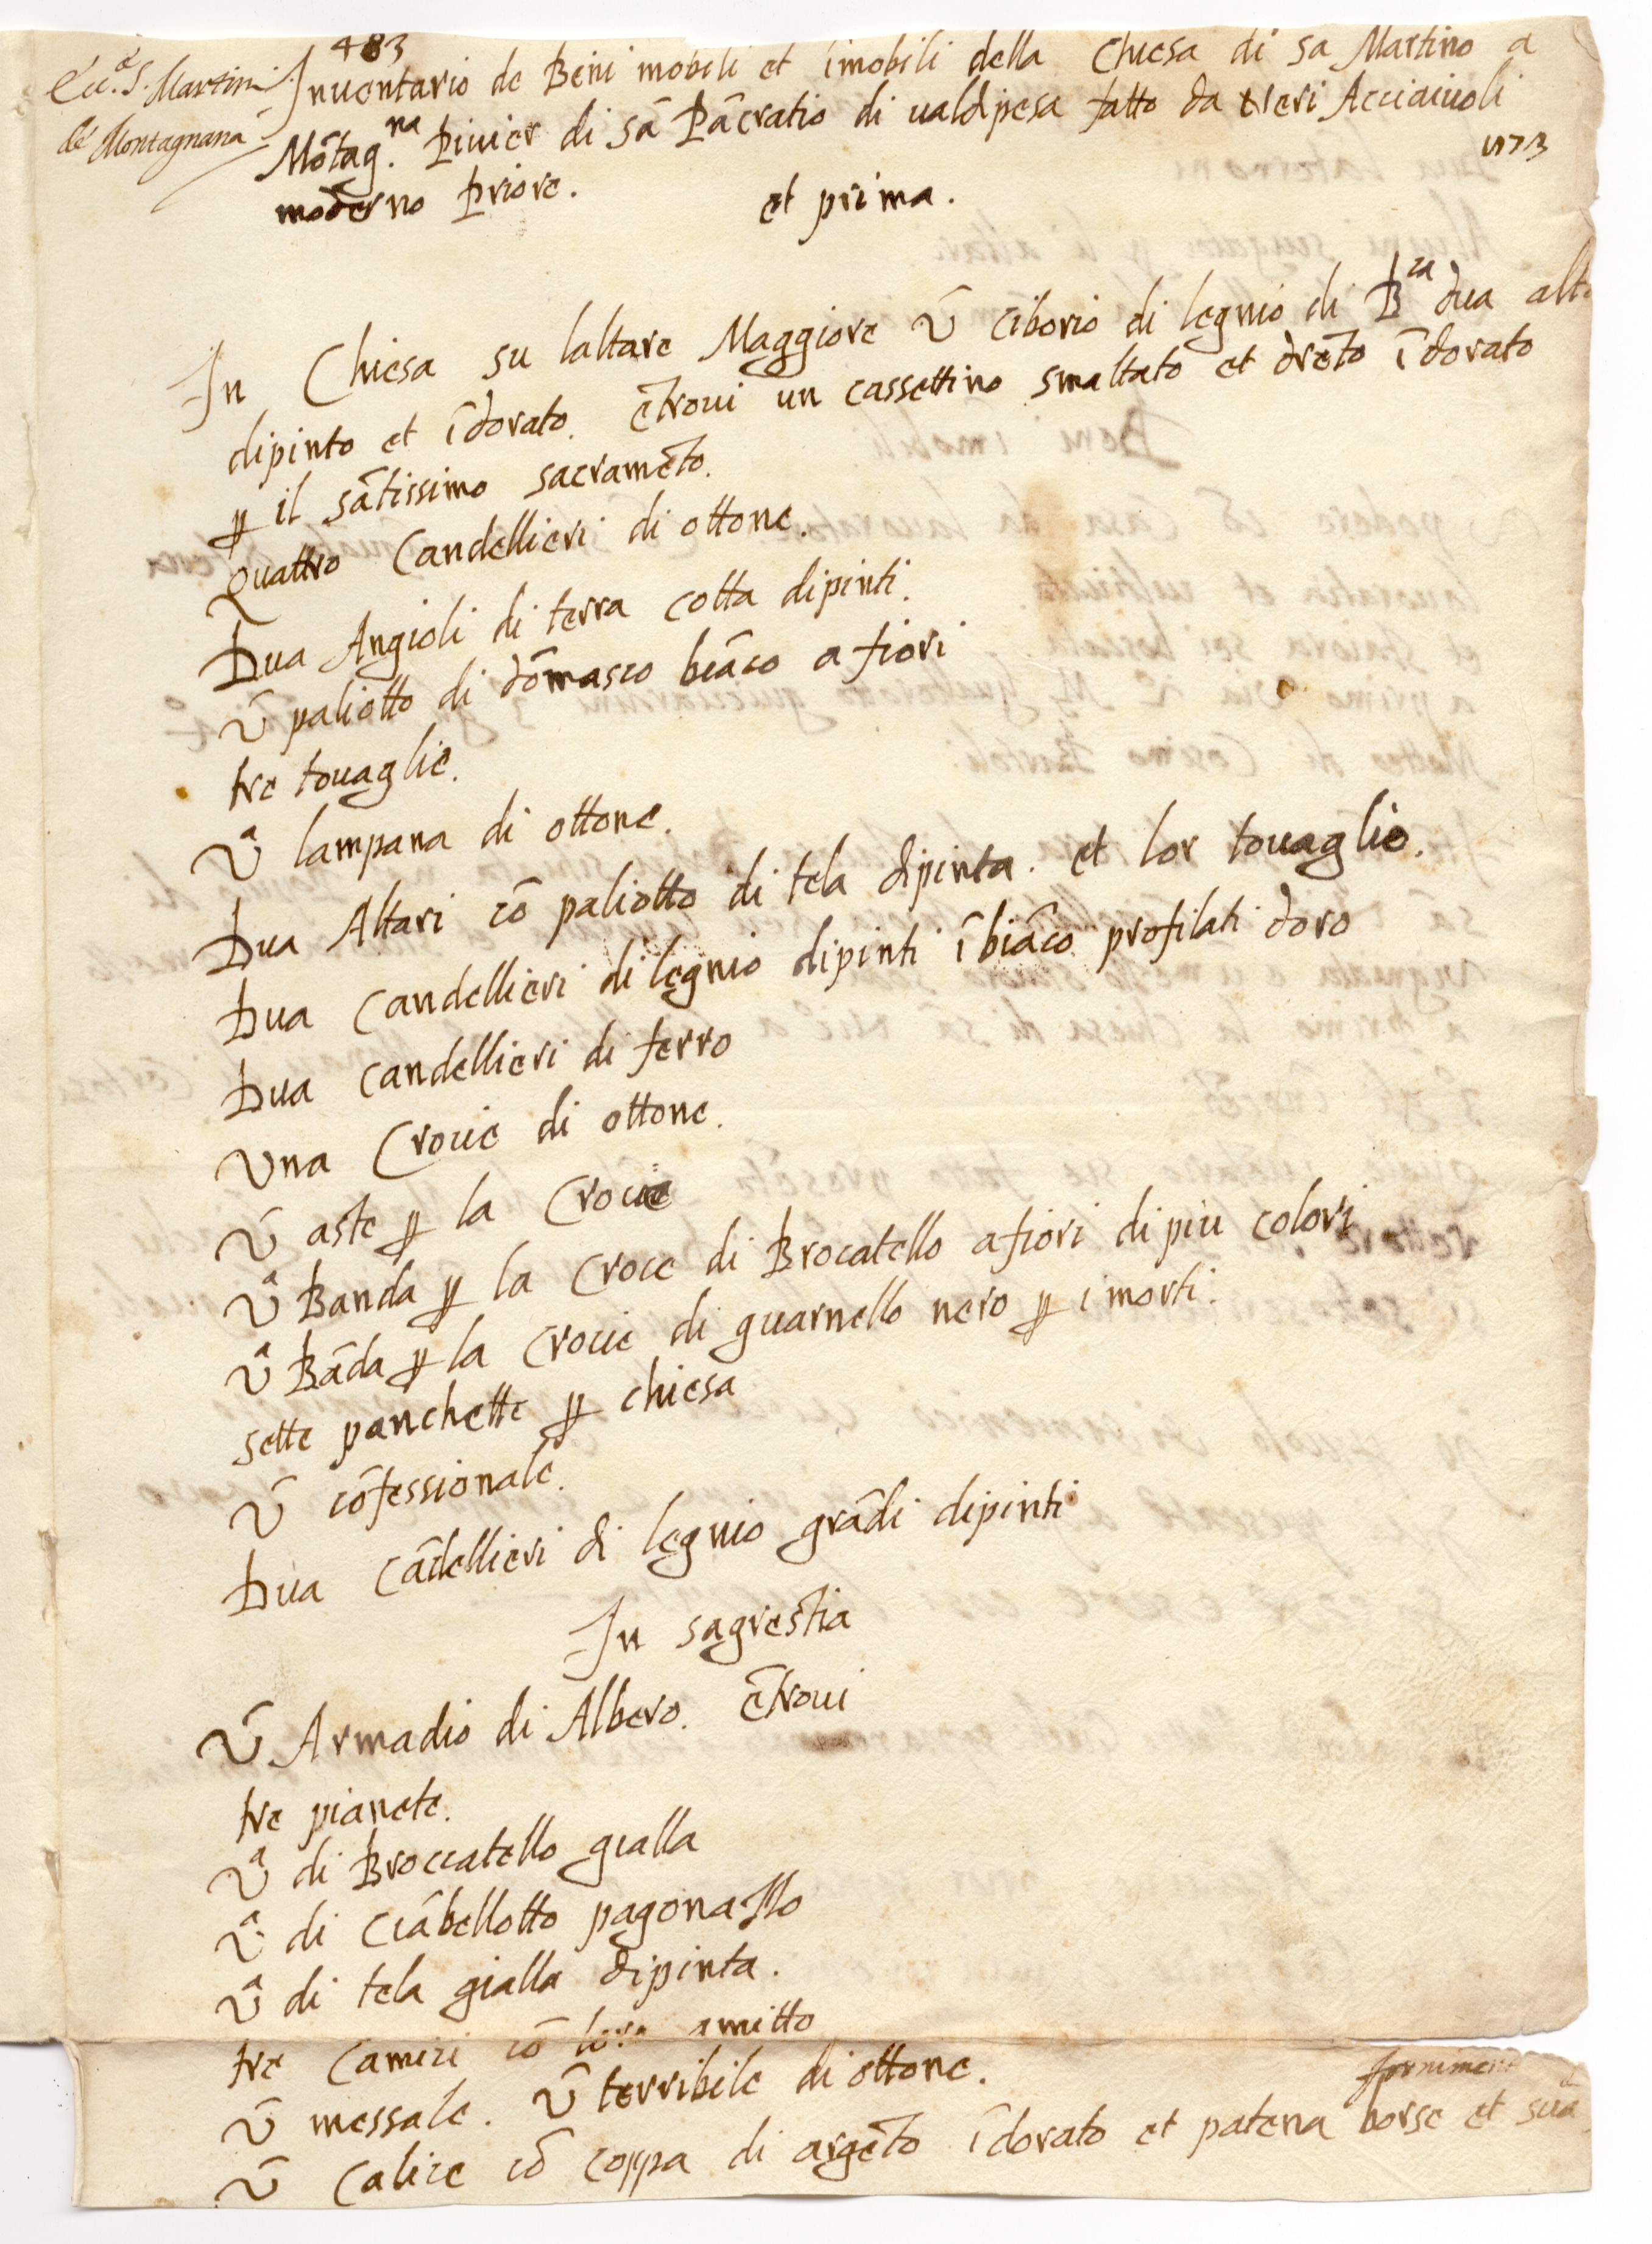 483
Ecc.ª S. Martini
de Montagnana
Inuentario de Beni mobili et imobili della Chiesa di sã Martino a
Mõtag.na Piuier di sã Pãcratio di ualdipesa fatto da Neri Acciaiuoli
1573
moderno Priore. et prima.
In Chiesa su laltare Maggiore ũ ciborio di legnio di Bra dua alto
dipinto et ĩdorato. ẽtroui un cassettino smaltato et drẽto ĩdorato
ꝑ il sãtissimo sacramẽto.
Quattro Candellieri di ottone.
Dua Angioli di terra cotta dipinti.
ũ paliotto di domasco biãco a fiori
tre touaglie.
ũª lampana di ottone.
Dua Altari cõ paliotto di tela dipinta. et lor touaglie.
Dua Candellieri di legnio dipinti ĩ biãco profilati doro
Dua candellieri di ferro
Una Crocie di ottone.
ũ aste ꝑ la Crocie
ũª Banda ꝑ la Croce di Brocatello a fiori di piu colori
ũª Bãda ꝑ la Crocie di guarnello nero ꝑ i morti.
sette panchette ꝑ chiesa
ũ cõfessionale.
Dua Cãdellieri di legnio grãdi dipinti
In sagrestia
ũ Armadio di Albero. ẽtroui
tre pianete.
ũª di Broccatello gialla
ũª di ciãbellotto pagonazzo
ũª di tela gialla dipinta.
tre Camici cõ loro amitto
ũ messale. ũ terribile di ottone.
fornimenti
ũ Calice cõ coppa di argẽto ĩdorato et patena borse et sua